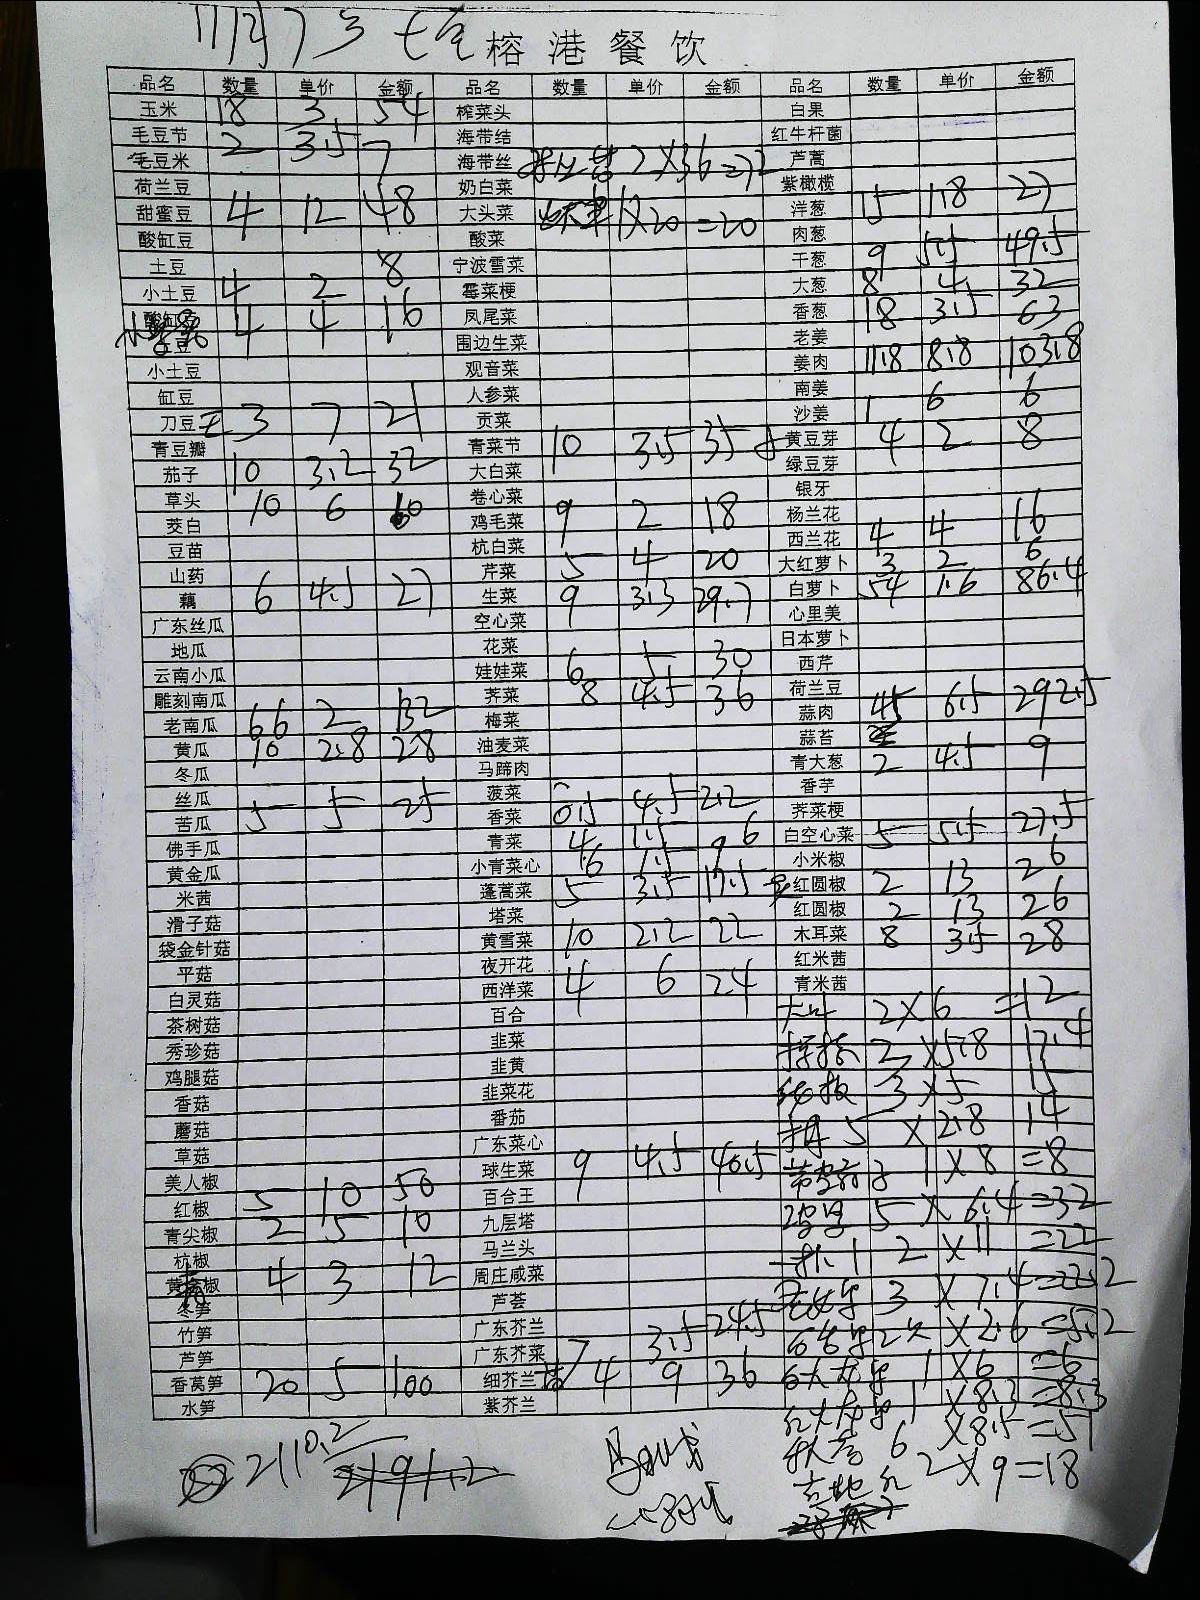 榕港餐饮
品名 数量 单价 金额 品名 数量 单价 金额 品名 数量 单价 金额
玉米 18 3 54 榨菜头 白果
毛豆节 2 3.5 7 海带结 红牛杆菌
毛豆米 海带丝 2X36=72 芦蒿
荷兰豆 奶白菜 紫橄榄
甜蜜豆 4 12 48 大头菜 1X20=20 洋葱 15 1.8 27
酸缸豆 酸菜 肉葱
土豆 8 宁波雪菜 干葱 9 5.5 49.5
小土豆 4 2 霉菜梗 大葱 8 4 32
4 4 16 凤尾菜 香葱 18 3.5 63
围边生菜 老姜
小土豆 观音菜 姜肉 11.8 8.8 103.8
缸豆 人参菜 南姜
刀豆 3 7 21 贡菜 沙姜 1 6 6
青豆瓣 青菜节 10 3.5 35 黄豆芽 4 2 8
茄子 10 3.2 32 大白菜 绿豆芽
草头 10 6 60 卷心菜 银牙
茭白 鸡毛菜 9 2 18 杨兰花
豆苗 杭白菜 西兰花 4 4 16
山药 芹菜 5 4 20 大红萝卜 3 2 6
藕 6 4.5 27 生菜 9 3.3 29.7 白萝卜 54 1.6 86.4
广东丝瓜 空心菜 心里美
地瓜 花菜 日本萝卜
云南小瓜 娃娃菜 6 5 30 西芹
雕刻南瓜 荠菜 8 4.5 36 荷兰豆
老南瓜 66 2 132 梅菜 蒜肉 45 6.5 292.5
黄瓜 10 2.8 28 油麦菜 蒜苔
冬瓜 马蹄肉 青大葱 2 4.5 9
丝瓜 菠菜 香芋
苦瓜 5 5 25 香菜 0.5 4.5 2.2 荠菜梗
佛手瓜 青菜 4 1.5 6 白空心菜 5 5.5 27.5
黄金瓜 小青菜心 6 1.5 9 小米椒
米茜 蓬蒿菜 5 3.5 17.5 红圆椒 2 13 26
滑子菇 塔菜 红圆椒 2 13 26
袋金针菇 黄雪菜 10 2.2 22 木耳菜 8 3.5 28
平菇 夜开花 红米茜
白灵菇 西洋菜 4 6 24 青米茜
茶树菇 百合 2X6=12
秀珍菇 韭菜 2X5.8 17.4
鸡腿菇 韭黄 3X5 15
香菇 韭菜花 5X2.8 14
蘑菇 番茄
草菇 广东菜心 1X8=8
美人椒 球生菜 9 4.5 40.5
红椒 5 10 50 百合王 5X6.4=32
青尖椒 2 5 10 九层塔 2X11=22
杭椒 马兰头
4 3 12 周庄咸菜 3X7.4=22.2
冬笋 芦荟
竹笋 广东芥兰 X2.6=5.2
芦笋 广东芥菜 7 3.5 24.5 1X6=6
香莴笋 20 5 100 细芥兰 4 9 36 1X8.3=8.3
水笋 紫芥兰 6X8.5=51
2X9=18
2110.2